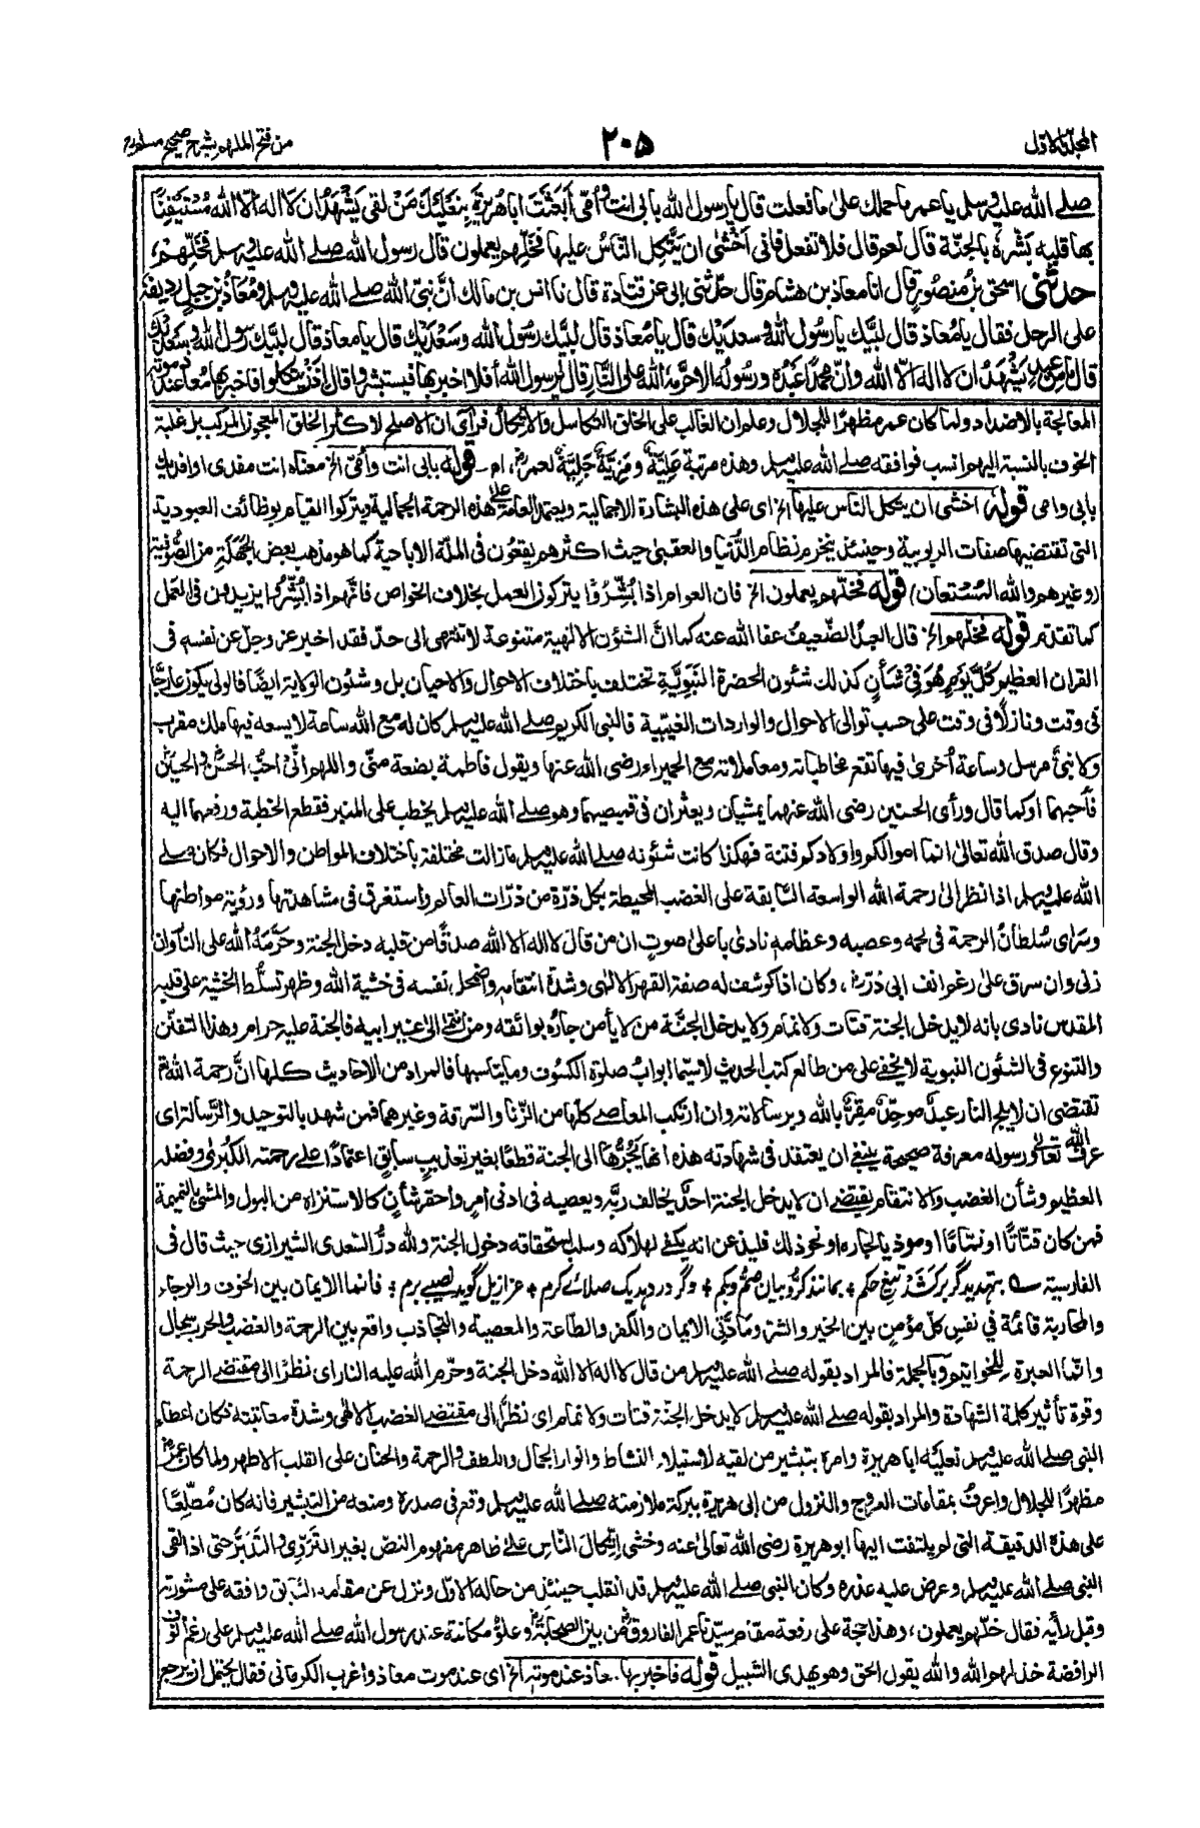 المجلد الاول
٢٠٥
من فتح الملهم بشرح صحيح مسلم
صلے الله عليه وسلم يا عمر ما حملك علىٰ ما فعلت قال يا رسول الله بابى انت وأمّى أَبَعَثْتَ ابا هُرَيْرَةَ بِنَعْلَيْكَ مَنْ لقى يَشْهَدُ ان لا اله الّا الله مُسْتَيْقِنًا
بها قلبه بَشِّرهُ بالجنّة قال نعم قال فلا تفعل فانى أَخْشٰى ان يَتَّكِل النّاسُ عليها فخَلِّهم يعملون قال رسول الله صلے الله عليه وسلم فخَلِّهم،
حدثنى اسحق بن مَنصورٍ قال انا معاذ بن هشام قال حدّثنى ابى عن قتادة قال نا انس بن مالك انَّ نبىَّ الله صلے الله عليه وسلم ومُعاذُ بن جبلٍ رديفهُ
على الرحل فقال يا مُعاذ قال لبَّيك يا رسُول الله وسعديك قال يا مُعاذ قال لبَّيك رسُول الله وسَعْدَيْك قال يا معاذ قال لبَّيك رسول الله وسعديك
قال ما من عبدٍ يَشْهَدُ ان لا اله الّا الله وأنّ محمدًا عَبْدُهُ ورسُولُه الا حرَّمَهُ الله على النَّار قال يا رسول الله أفلا اخبر بها فيستبشروا قال اذن يتّكلوا فاخبر بها مُعاذ عند موته
المعالجة بالاضداد ولما كان عمر مظهرًا للجلال وعلم ان الغالب على الخلق التكاسل والاتّكال فرآى ان الاصلح لاكثر الخلق المعجون المركب بل غلبة
الخوف بالنسبة اليهم انسب فوافقه صلے الله عليه وسلم وهذه مرتبة عَلِيَّةٌ ومَزِيَّةٌ جَلِيَّةٌ لعمرؓ، اه ــ قوله بابى انت وأمّى الخ معناه انت مفدى او افديك
بابى وامى قوله اخشى ان يتكل الناس عليها الخ اى على هذه البشارة الاجمالية ويعتمد العامة على هذه الرحمة الجمالية ويتركوا القيام بوظائف العبودية
التى تقتضيها صفات الربوبية وحينئذ ينخرم نظام الدُّنيا والعقبىٰ حيث اكثرهم يقعون فى الملّة الاباحية كما هو مذهب بعض الجَهَلَةِ من الصُّوفية
(وغيرهم والله المُسْتَعان) قوله فخلّهم يعملون الخ فان العوام اذا بُشِّرُوا يتركون العمل بخلاف الخواص فانّهم اذا بُشِّرُوا يزيدون فى العمل
كما تقدم قوله فخلهم الخ قال العبدُ الضّعيفُ عفا الله عنه كما انَّ الشؤن الالهية متنوعة لا تنتهى الى حدّ فقد اخبر عز وجل عن نفسه فى
القران العظيم كُلَّ يَوْمٍ هُوَ فِىْ شَأْنٍ كذلك شئون الحضرة النَّبَوِيَّة تختلف باختلاف الاحوال والاحيان بل وشئون الولاية ايضًا فالولى يكون عارجًا
فى وقت ونازلًا فى وقت على حسب توالى الاحوال والواردات الغيبية فالنبى الكريم صلے الله عليه وسلم كان له مع الله ساعة لا يسعه فيها ملك مقرب
ولا نبىٌّ مرسل وساعة أُخرىٰ فيها تقع مخاطباته ومعاملاته مع الحميراء رضى الله عنها ويقول فاطمة بضعة منّى واللهم انّى احبُّ الحسنؓ والحسينؓ
فأحبهما او كما قال ورأى الحسنين رضى الله عنهما يمشيان ويعثران فى قميصيهما وهو صلے الله عليه وسلم يخطب على المنبر فقطع الخطبة ورفعهما اليه
وقال صدق الله تعالىٰ انما اموالكم واولادكم فتنة فهكذا كانت شئونه صلے الله عليه وسلم ما زالت مختلفة باختلاف المواطن والاحوال فكان صلے
الله عليه وسلم اذا نظر الىٰ رحمة الله الواسعة السّابقة على الغضب المحيطة بكل ذرّة من ذرّات العالم واستغرق فى مشاهدتها ورؤية مواطنها
وسرٰى سُلطانُ الرحمة فى لحمه وعصبه وعظامه نادىٰ باعلىٰ صوتٍ ان من قال لا اله الا الله صدقًا من قلبه دخل الجنة وحَرَّمَهُ الله على النار وان
زنى وان سرق علىٰ رغم انف ابى ذرؓ، وكان اذا كوشف له صفة القهر الالٰهى وشدّة انتقامه واضمحل نفسه فى خشية الله وظهر تسلُّط الخشية على قلبه
المقدس نادى بانه لا يدخل الجنة قتات ولا نمام ولا يدخل الجنَّة من لا يأمن جارُه بوائقه ومن انتمٰى الىٰ غير ابيه فالجنة عليه حرام وهذا التفنّن
والتنوع فى الشئون النبوية لا يخفٰى على من طالع كتب الحديث لا سيّما ابوابُ صلٰوة الكسُوف وما يناسبها فالمراد من الاحاديث كلها انَّ رحمة الله
تقتضى ان لا يلج النار عبدٌ موحِّدٌ مقرٌّ بالله وبرسالاته وان ارتكب المعاصے كلّها من الزّنا والسّرقة وغيرهما فمن شهد بالتوحيد والرّسالة اى
عرف الله تعالىٰ ورسوله معرفة صحيحة ينبغى ان يعتقد فى شهادته هذه انها يَجُرُّها الى الجنة قطعًا بغير تعذيبٍ سابقٍ اعتمادًا علىٰ رحمته الكُبرىٰ وفضله
العظيم وشأن الغضب والانتقام يقتضے ان لا يدخل الجنة احدٌ يخالف ربَّه ويعصيه فى ادنى امرٍ واحقر شأنٍ كالاستنزاه من البول والمشى بالنميمة
فمن كان قتّاتًا او نمّامًا او موذيًا لجاره او نحو ذلك فليذعن انه يكفى لهلاكه وسلب استحقاقه دخول الجنة ولله درُّ السَّعدى الشيرازى حيث قال فى
الفارسية ؎ بتهديد گر بركَشَد تيغِ حكم * بمانند كرُّوبيان صُمٌّ وبُكم * وگر در دهد يك صلائے كرم * عزازيل گويد نصيبے برم * فانما الايمان بين الخوف والرجاء
والمحاربة قائمة فى نفسِ كلّ مؤمنٍ بين الخير والشرّ ومادَّتى الايمان والكفر والطّاعة والمعصية والتجاذب واقع بين الرحمة والغضب والحرب سجال
وانّما العبرة لِلخَواتيم وبالجملة فالمراد بقوله صلے الله عليه وسلم من قال لا اله الا الله دخل الجنة وحرّم الله عليه النار اى نظرًا الى مقتضے الرحمة
وقوة تأثير كلمة الشهادة والمراد بقوله صلے الله عليه وسلم لا يدخل الجنّة قتات ولا نمام اى نظرًا الى مقتضے الغضب الالٰهى وشدة معاتبته فكان اعطاء
النبى صلے الله عليه وسلم نعليه ابا هريرة وامره بتبشير من لقيه لاستيلاء النشاط وانوار الجمال واللطف والرحمة والحنان على القلب الاطهر ولما كان عمرؓ
مظهرًا للجلال واعرفُ بمقامات العروج والنزول من ابى هريرة ببركة ملازمته صلے الله عليه وسلم وقع فى صدره ومنعه من التبشير فانه كان مُطّلِعًا
على هذه الدقيقة التى لم يلتفت اليها ابو هريرة رضى الله تعالىٰ عنه وخشى اتّكالَ النّاسِ علىٰ ظاهر مفهوم النصّ بغير التَرَوِّى والتَدَبُّر حتى اذا لقى
النبى صلے الله عليه وسلم وعرض عليه عذره وكان النبى صلے الله عليه وسلم قد انقلب حينئذٍ من حاله الاوّل ونزل عن مقامه السّابق وافقه على مشورته
وقبل رأيه فقال خلّهم يعملون، وهذا حجة على رفعة مقام سيّدنا عمر الفاروقؓ من بين الصحابةؓ وعلوّ مكانته عند رسول الله صلے الله عليه وسلم على رغم انوف
الرافضة خذلهم الله والله يقول الحق وهو يهدى السّبيل قوله فاخبر بها معاذ عند موته الخ اى عند موت معاذ واغرب الكرمانى فقال يحتمل ان يرجع